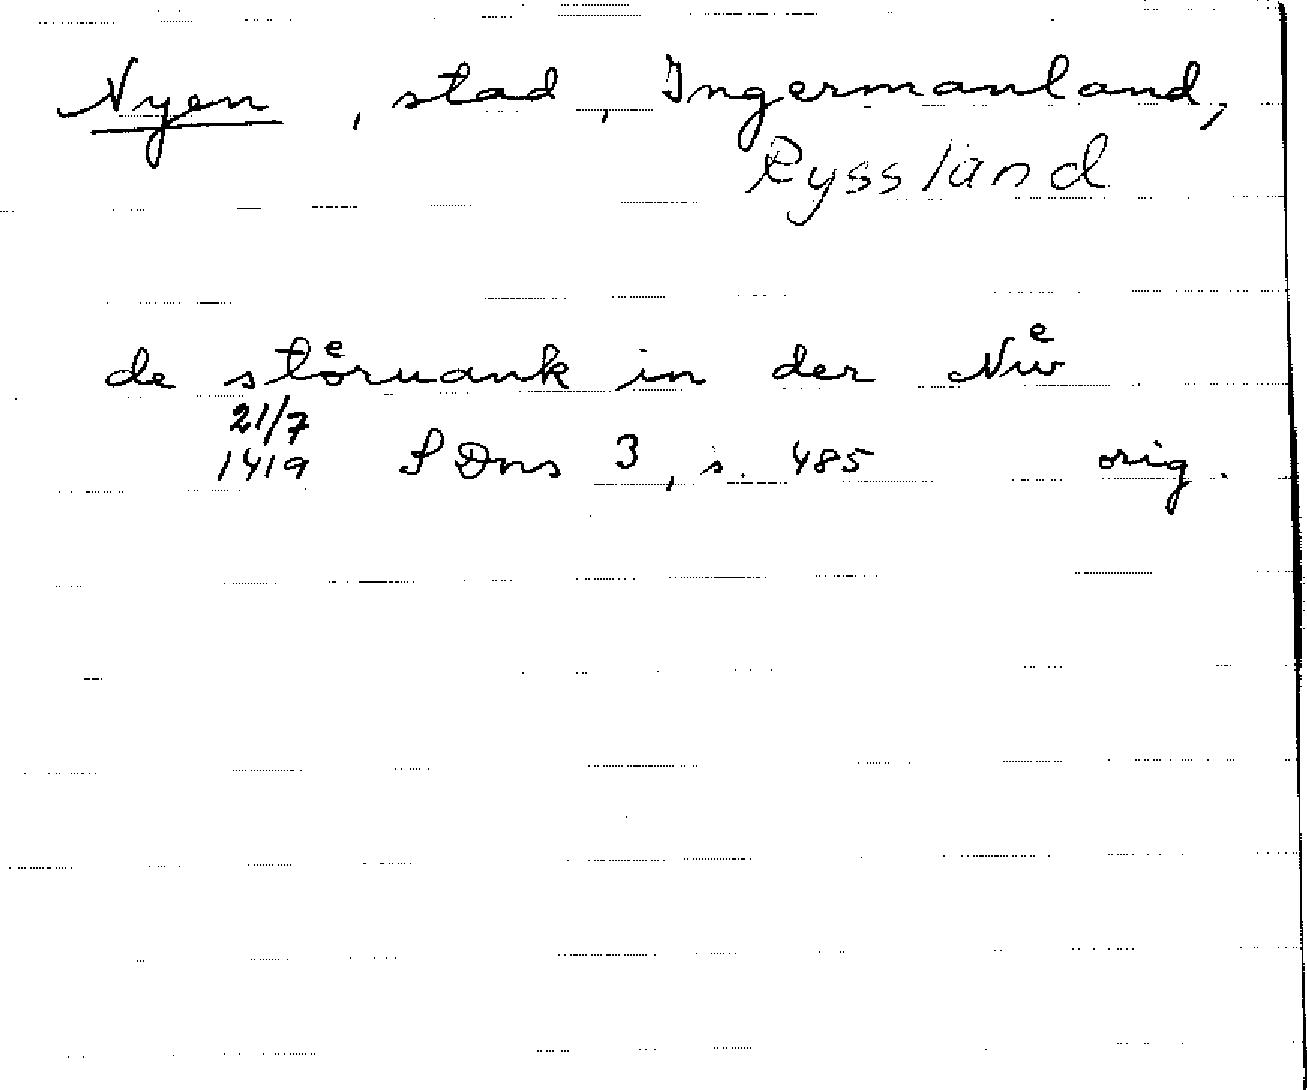 Nyen, stad, Ingermanland,
Ryssland
de stoͤruank in der Nuͤw
21/7
1419 SDns 3, s. 485 orig.